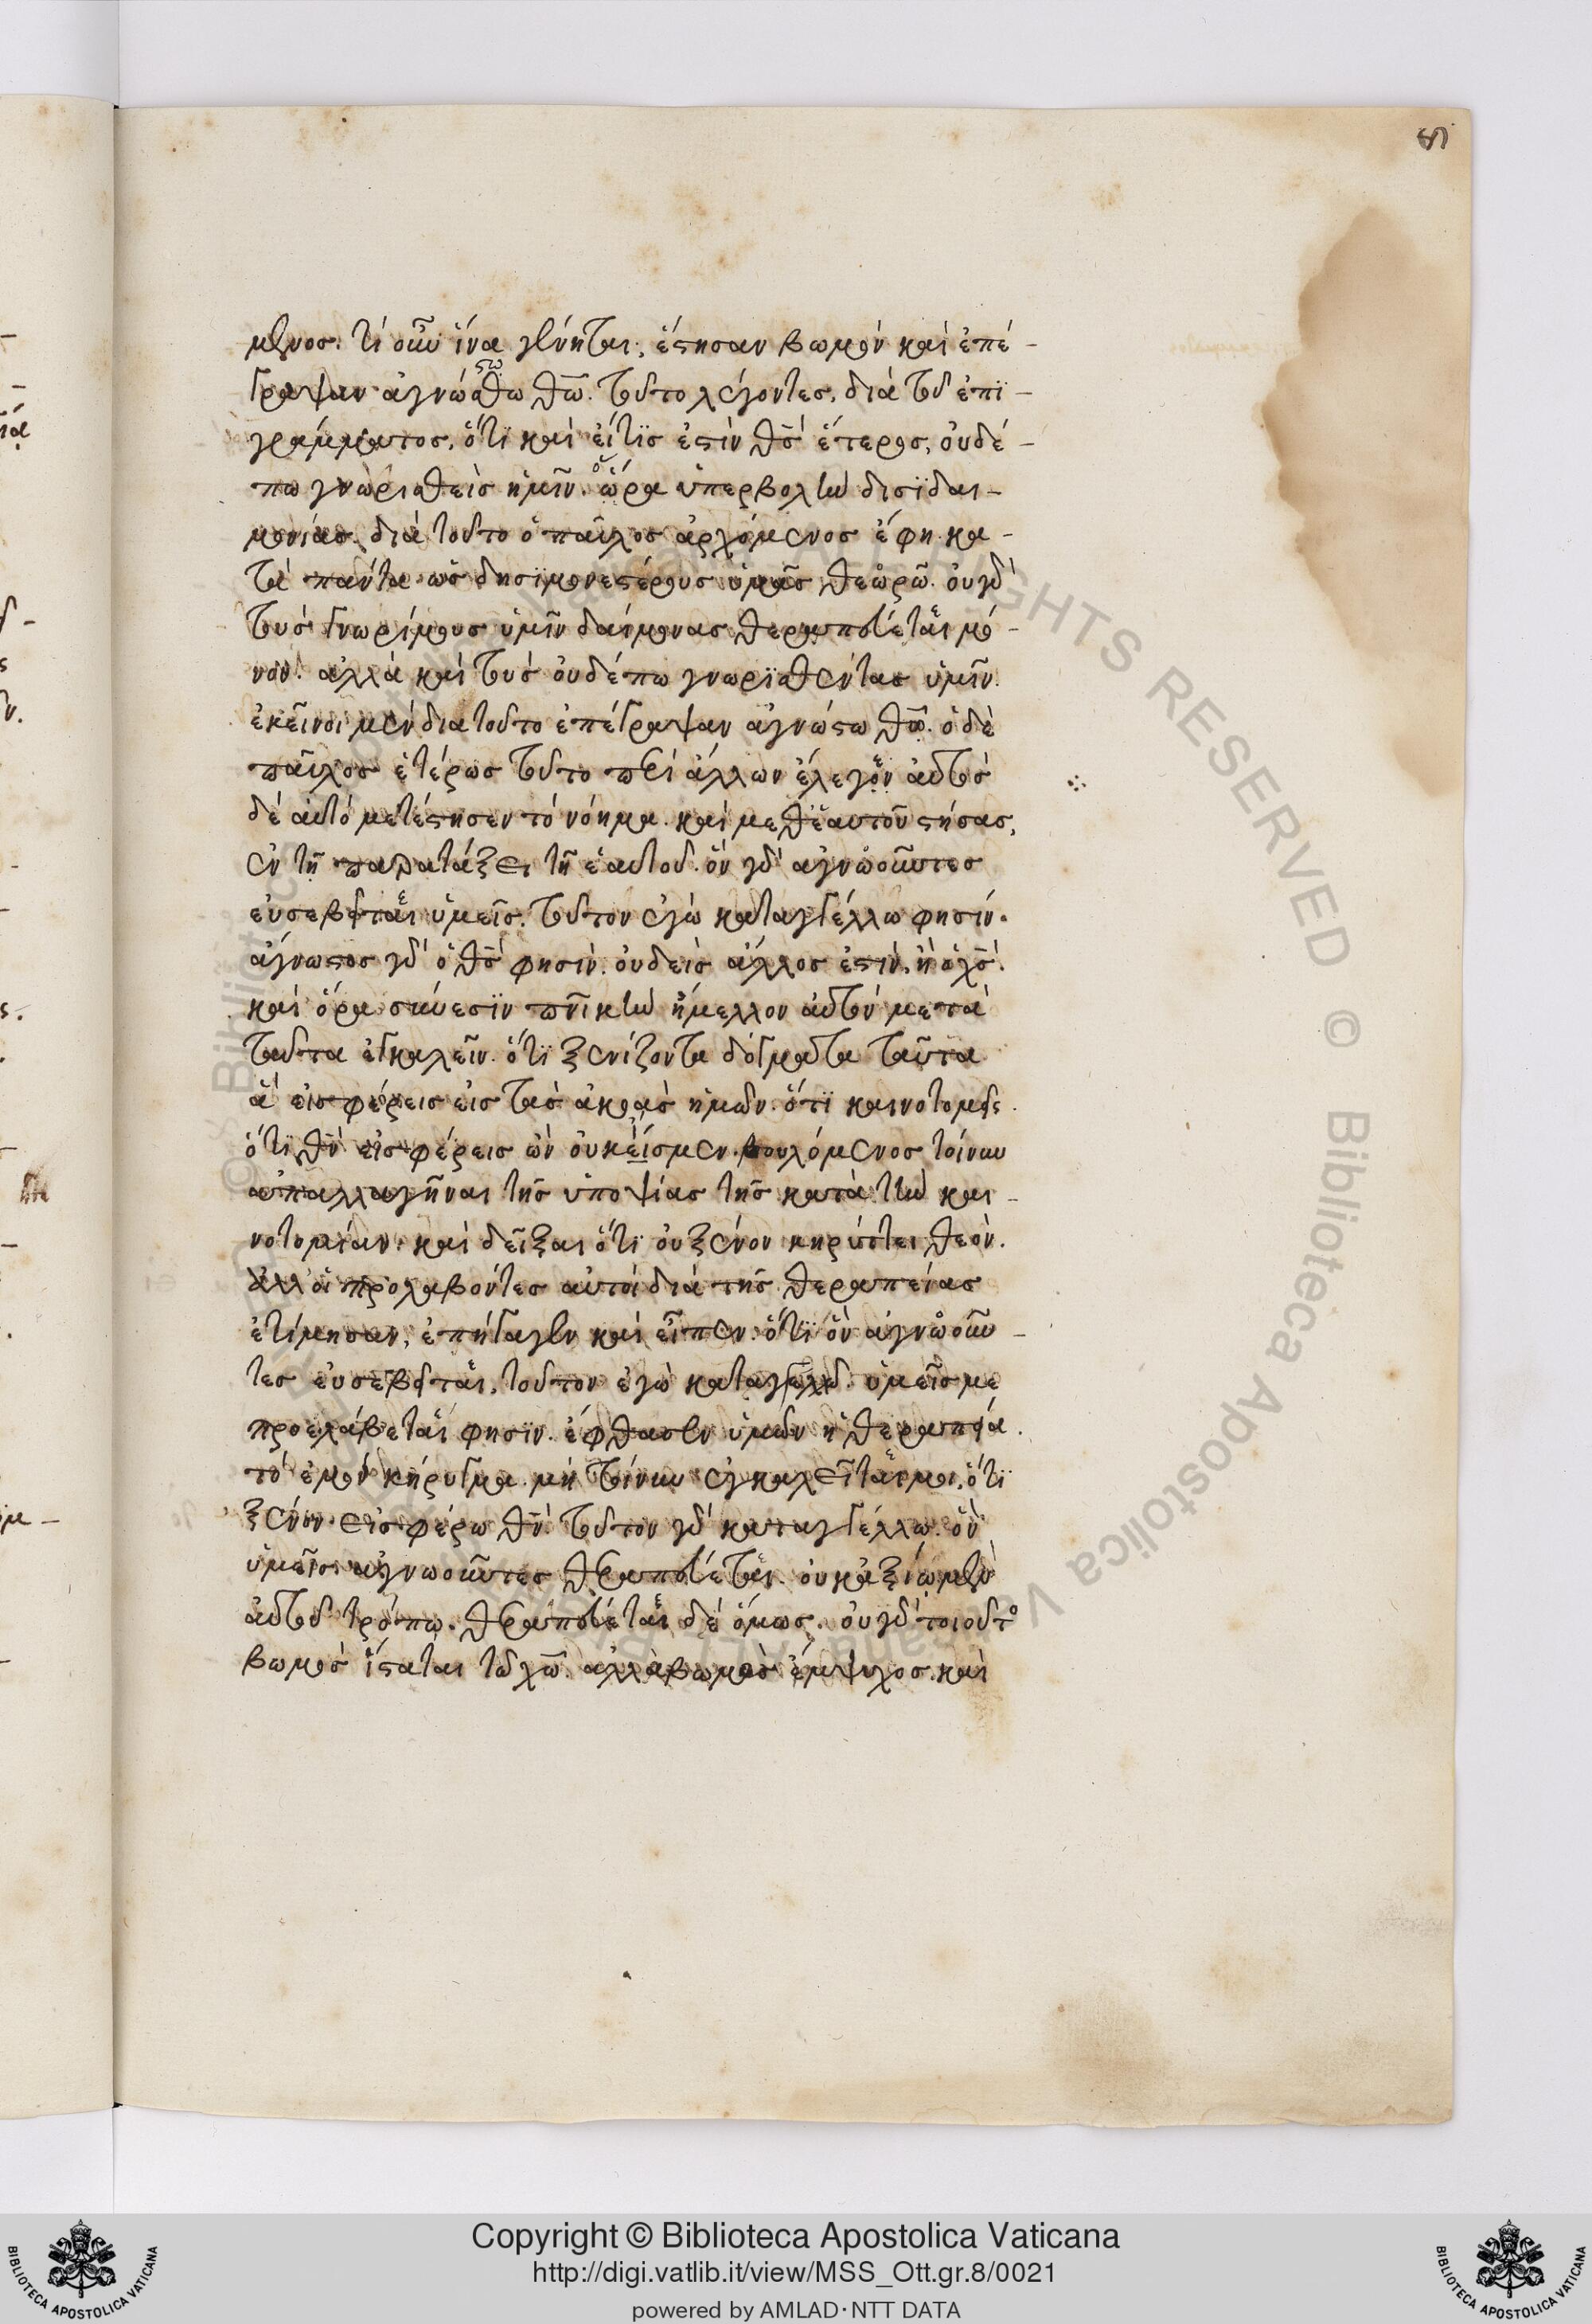 μενος. τί οὖν ἵνα γένηται, ἔστησαν βωμόν καὶ ἐπέ-
γραψαν ἀγνώστω θω. τοῦτο λέγοντες, διὰ τοῦ ἐπϊ-
γράμματος, ὅτϊ καὶ εἴτϊς ἐστὶν θς ἕτερος, οὐδέ-
πω γνωρισθεὶς ἡμῖν. ὅρα ὑπερβολὴν δισϊδαι-
μονίας. διὰ τοῦτο ὁ παῦλος ἀρχόμενος ἔφη. κα-
τὰ πάντα ὡς δησϊμονεστέρους ὑμᾶς θεωρῶ. οὐ γὰρ
τοὺς γνωρίμους ὑμῖν δαίμονας θεραπεύεται μό-
νον. ἀλλὰ καὶ τοὺς οὐδέπω γνωρϊσθέντας ὑμῖν.
ἐκεῖνοι μὲν διατοῦτο ἐπέγραψαν ἀγνώστω θω. ὁ δὲ
παῦλος ἑτέρως τοῦτο περὶ ἄλλων ἔλεγον αὐτὸς
δὲ αὐτό μετέστησεν τὸ νόημα. καὶ μεθἑαυτοῦ στήσας,
ἐν τῆ παρατάξει τῆ ἑαυτοῦ. ὃν γὰρ ἀγνωοῦντες
εὐσεβεῖται ὑμεῖς. τοῦτον ἐγὼ καταγγέλλω φησίν.
ἄγνωστος γὰρ ὁ θς φησὶν. οὐδεὶς ἄλλος ἐστὶν, ἢ ὁ χς.
καὶ ὅρα σύνεσϊν πνικὴν ἤμελλον αὐτὸν μετὰ
ταῦτα ἐγκαλεῖν. ὅτϊ ξενίζοντα δόγματα ταῦτα
ἃ εἰσφέρεις εἰς τὰς ἀκοὰς ἡμῶν. ὅτϊ καινοτομεῖς.
ὅτϊ θν εἰσφέρεις ὧν οὐκ ἴσμεν. βουλόμενος τοίνυν
ἀπαλλαγῆναι τῆς ὑποψίας τῆς κατὰ τὴν και-
νοτομίαν. καὶ δεῖξαι ὅτϊ οὐ ξένον κηρύττει θεόν.
ἀλλ' ὃ προλαβόντες αὐτοὶ διὰ τῆς θεραπείας
ἐτίμησαν, ἐπήγαγεν καὶ εἶπεν. ὅτϊ ὃν ἀγνωοῦν-
τες εὐσεβεῖται, τοῦτον ἐγὼ καταγγέλλω. ὑμεῖς με
προελάβεται φησϊν. ἔφθασεν ὑμῶν ἡ θεραπεία.
τὸ ἐμόν κήρυγμα. μὴ τοίνυν ἐγκαλεῖται μοι, ὅτϊ
ξένον εἰσφέρω θν. τοῦτον γὰρ καταγγέλλω. ὃν
ὑμεῖς ἀγνωοῦντες θεραπεύεται. οὐκ ἀξίω μὲν
αὐτοῦ τρόπω. θεραπεύεται δὲ ὅμως. οὐ γὰρ τοιοῦτο
βωμὸς ἵσταται τῶ χω. ἀλλὰ βωμὸς ἔμψυχος. καὶ
Copyright © Biblioteca Apostolica Vaticana
http://digi.vatlib.it/view/MSS_Ott.gr.8/0021
powered by AMLAD·NTT DATA